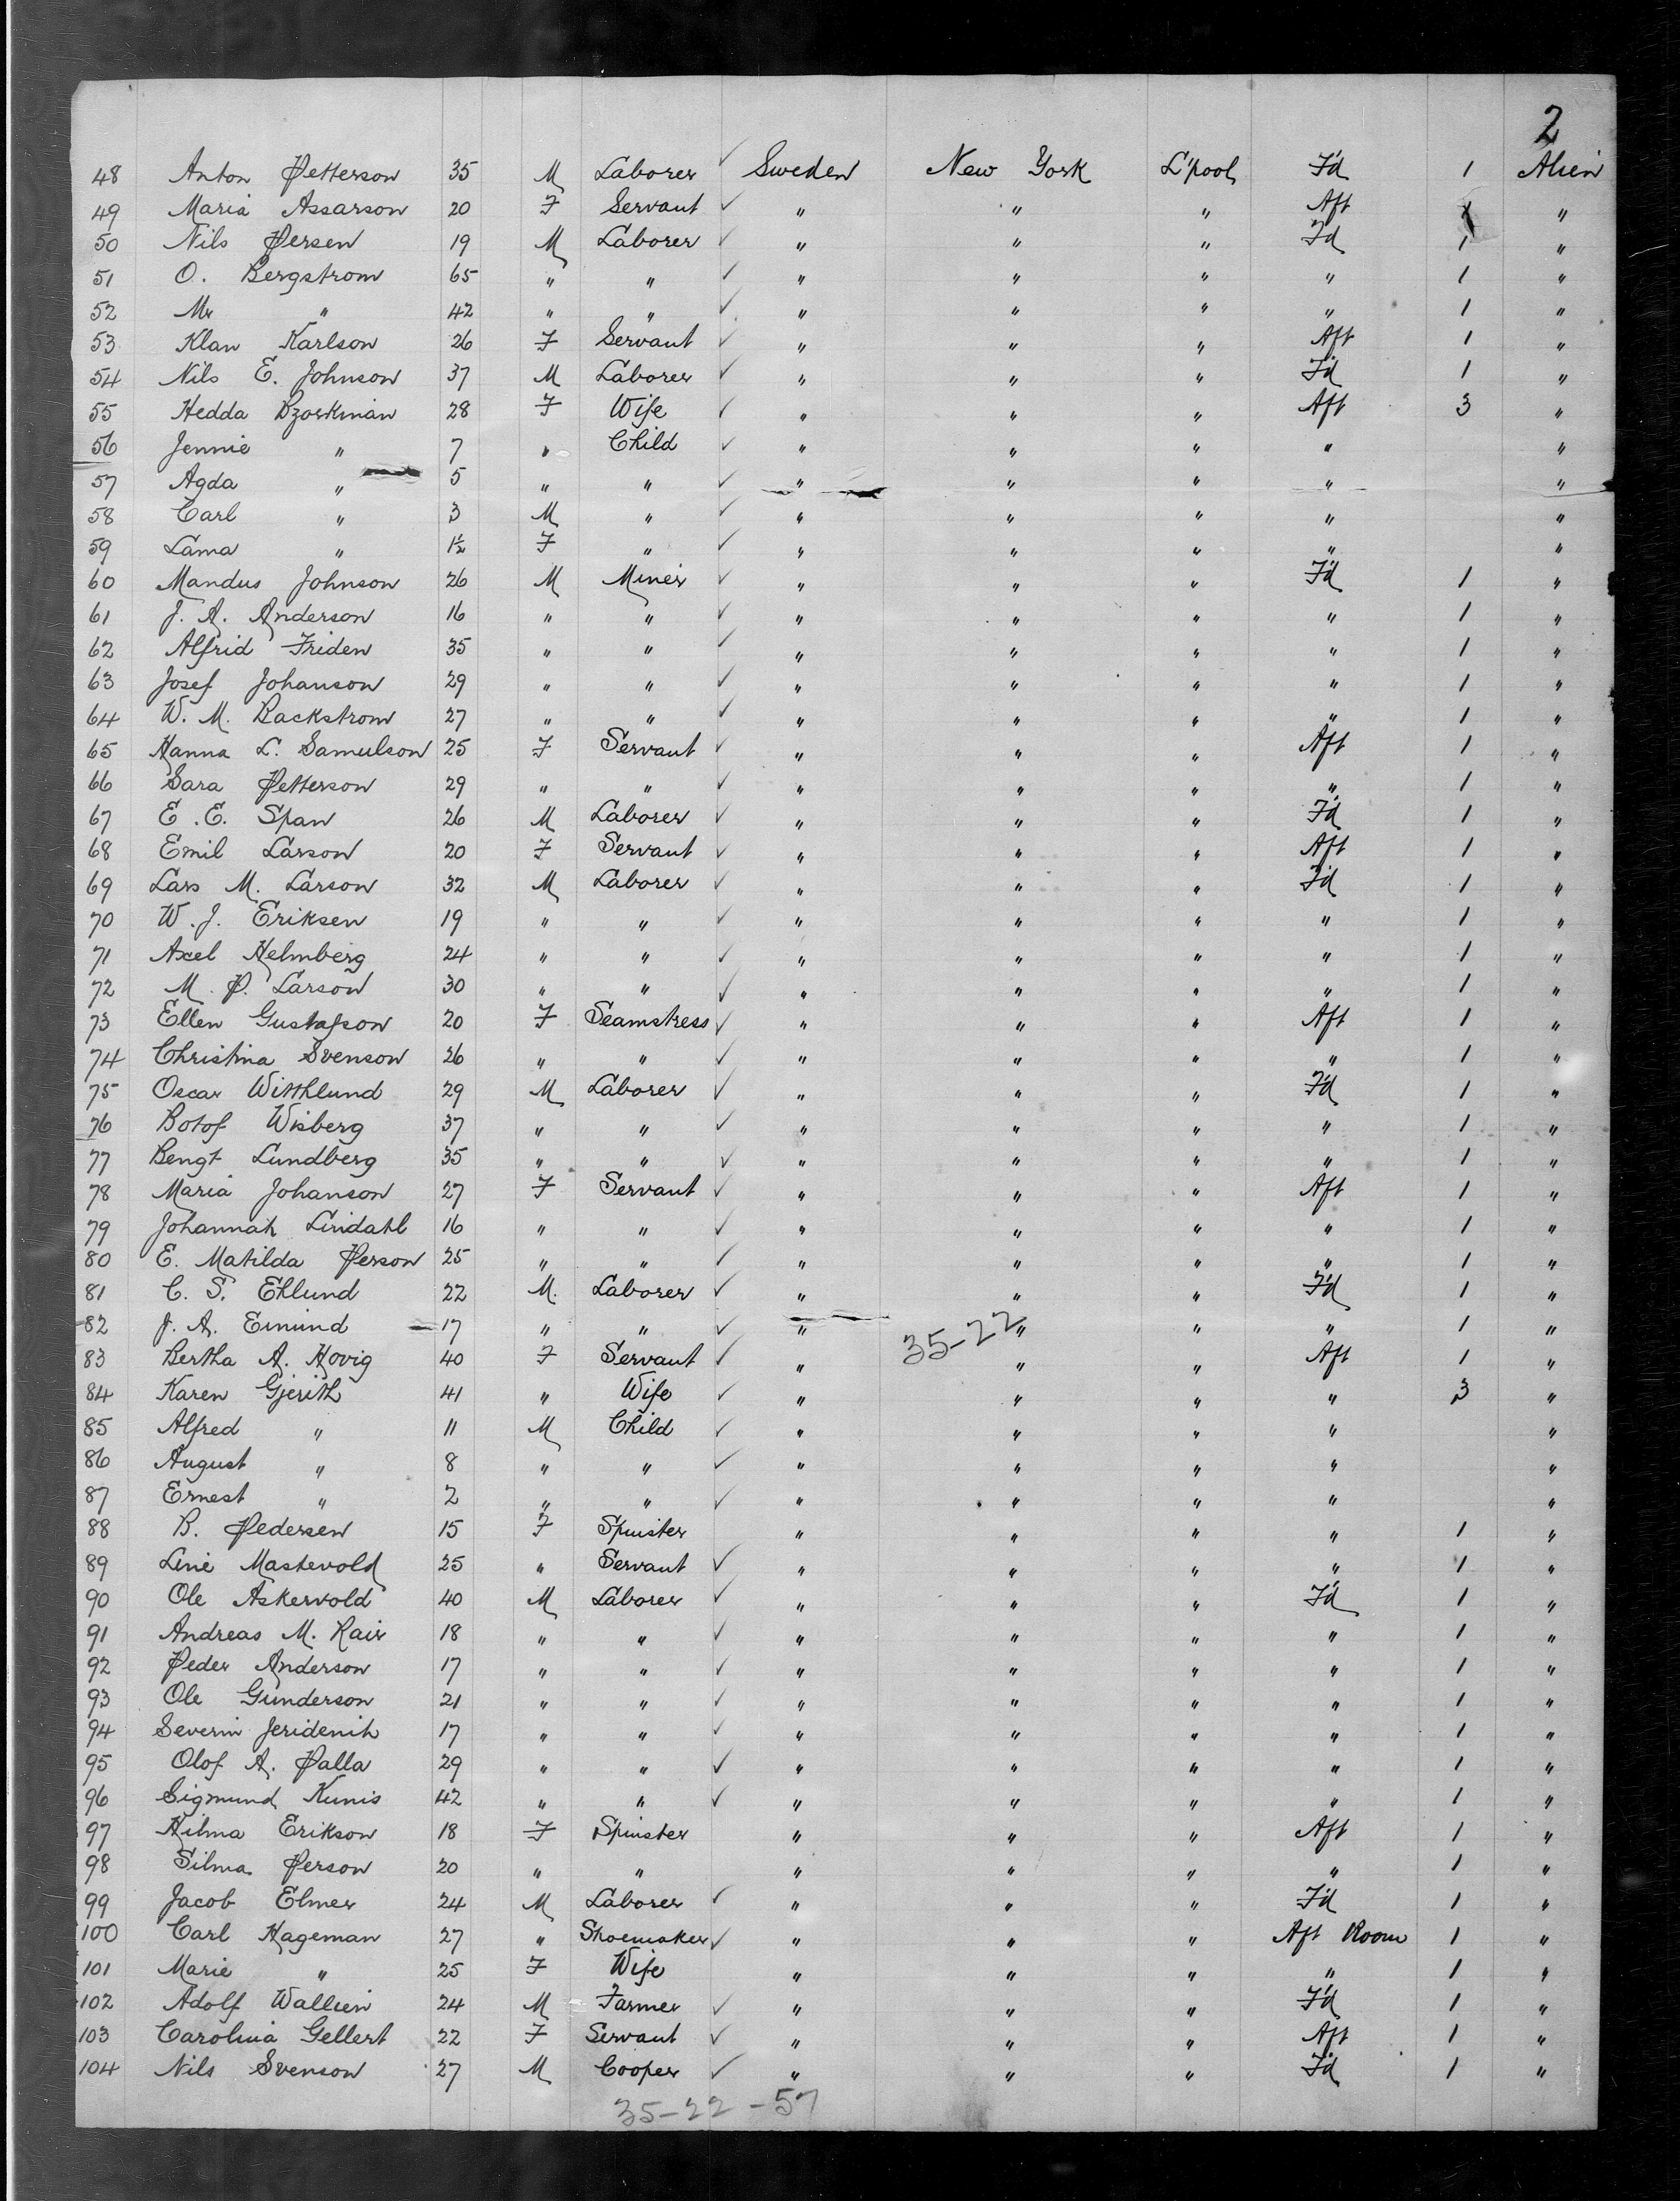 2
48 Anton Petterson 35 M Laborer ✓ Sweden New York L'pool F'd 1 Alien
49 Maria Assarson 20 F Servant ✓ " " " Aft 1 "
50 Nils Persen 19 M Laborer ✓ " " " F'd 1 "
51 O. Bergstrom 65 " " ✓ " " " " 1 "
52 Mr " 42 " " ✓ " " " " 1 "
53 Klan Karlson 26 F Servant ✓ " " " Aft 1 "
54 Nils E. Johnson 37 M Laborer ✓ " " " F'd 1 "
55 Hedda Bzorkman 28 F Wife ✓ " " " Aft 3 "
56 Jennie " 7 " Child ✓ " " " " "
57 Agda " 5 " " ✓ " " " " "
58 Carl " 3 M " ✓ " " " " "
59 Lama " 1½ F " ✓ " " " " "
60 Mandus Johnson 26 M Miner ✓ " " " F'd 1 "
61 J. A. Anderson 16 " " ✓ " " " " 1 "
62 Alfrid Friden 35 " " ✓ " " " " 1 "
63 Josef Johanson 29 " " ✓ " " " " 1 "
64 W. M. Backstrom 27 " " ✓ " " " " 1 "
65 Hanna L. Samulson 25 F Servant ✓ " " " Aft 1 "
66 Sara Petterson 29 " " ✓ " " " " 1 "
67 E. E. Span 26 M Laborer ✓ " " " F'd 1 "
68 Emil Larson 20 F Servant ✓ " " " Aft 1 "
69 Lars M. Larson 32 M Laborer ✓ " " " F'd 1 "
70 W. J. Eriksen 19 " " ✓ " " " " 1 "
71 Axel Helmberg 24 " " ✓ " " " " 1 "
72 M. P. Larson 30 " " ✓ " " " " 1 "
73 Ellen Gustafson 20 F Seamstress ✓ " " " Aft 1 "
74 Christina Svenson 26 " " ✓ " " " " 1 "
75 Oscar Witthlund 29 M Laborer ✓ " " " F'd 1 "
76 Botof Wisberg 37 " " ✓ " " " " 1 "
77 Bengt Lundberg 35 " " ✓ " " " " 1 "
78 Maria Johanson 27 F Servant ✓ " " " Aft 1 "
79 Johannah Lindahl 16 " " ✓ " " " " 1 "
80 E. Matilda Person 25 " " ✓ " " " " 1 "
81 C. S. Eklund 22 M. Laborer ✓ " " " F'd 1 "
82 J. A. Emund 17 " " ✓ " " " " 1 "
35-22
83 Bertha A. Hovig 40 F Servant ✓ " " " Aft 1 "
84 Karen Gjerith 41 " Wife ✓ " " " " 3 "
85 Alfred " 11 M Child ✓ " " " " "
86 August " 8 " " ✓ " " " " "
87 Ernest " 2 " " ✓ " " " " "
88 B. Pedersen 15 F Spinster " " " " 1 "
89 Line Mastevold 25 " Servant ✓ " " " " 1 "
90 Ole Askervold 40 M Laborer ✓ " " " F'd 1 "
91 Andreas M. Rair 18 " " ✓ " " " " 1 "
92 Peder Anderson 17 " " ✓ " " " " 1 "
93 Ole Gunderson 21 " " ✓ " " " " 1 "
94 Severin 17 " " ✓ " " " " 1 "
95 Olof A. Palla 29 " " ✓ " " " " 1 "
96 Sigmund Kunis 42 " " ✓ " " " " 1 "
97 Hilma Erikson 18 F Spinster " " " Aft 1 "
98 Silma Person 20 " " " " " " 1 "
99 Jacob Elmer 24 M Laborer ✓ " " " F'd 1 "
100 Carl Hageman 27 " Shoemaker ✓ " " " Aft Room 1 "
101 Marie " 25 F Wife " " " " 1 "
102 Adolf Wallien 24 M Farmer ✓ " " " F'd 1 "
103 Carolina Gellert 22 F Servant ✓ " " " Aft 1 "
104 Nils Svenson 27 M Cooper ✓ " " " F'd 1 "
35-22-57